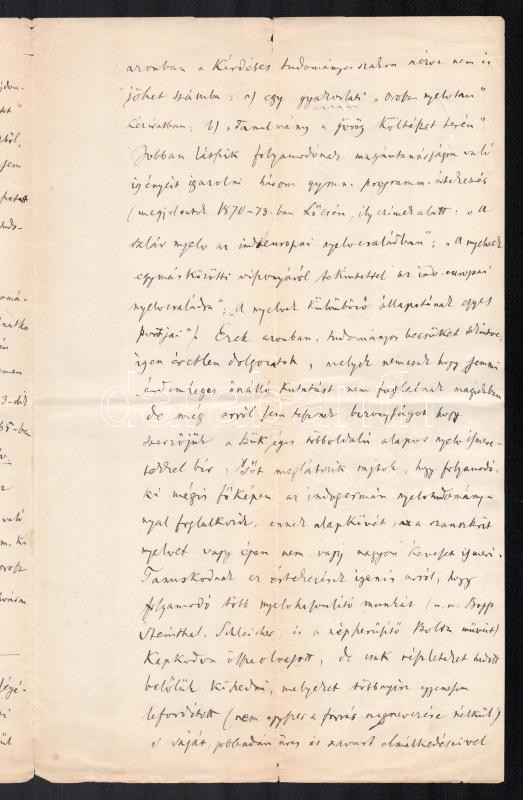 azonban a kérdéses tudományos szakra nézve nem is
jöhet számba: a) egy gyakorlati „orosz nyelvtan"
kéziratban; b) „Tanulmány a görög költészet terén".
Jobban látszik folyamodónak magántanárságra való
igényeit igazolni három gymn. programm-értekezés
(megjelentek 1870–73-ban Lőcsén, ily címek alatt: „A
szláv nyelv az indoeuropai nyelvcsaládban"; „A nyelvek
egymásközötti viszonyáról tekintettel az indo-europai
nyelvcsaládra"; „A nyelvek különböző állapotának
Ezek azonban, tudományos becsüket tekintve,
igen éretlen dolgozatok, melyek nemcsak hogy semmi
érdemleges önálló kutatást nem foglalnak magukban
de még arról sem tesznek bizonyságot hogy
szerzőjük a szükséges többoldalú alapos nyelvismere-
tekkel bír; sőt meglátszik rajtok, hogy folyamodó,
ki mégis főképen az indogermán nyelvtudomány-
nyal foglalkozik, ennek alapkövét, a szanszkrit
nyelvet vagy épen nem vagy nagyon keveset ismeri.
Tanuskodnak ez értekezések igenis arról, hogy
folyamodó több nyelvhasonlító munkát (u. m. Bopp
Steinthal, Schleicher, és a népszerűsítő művüt)
kapkodva összeolvasott, de csak részleteket tudott
belőlük kiszedni, melyeket többnyire egyenesen
lefordított (nem egyszer a forrás megnevezése nélkül)
s saját üres és zavart elmélkedéseivel